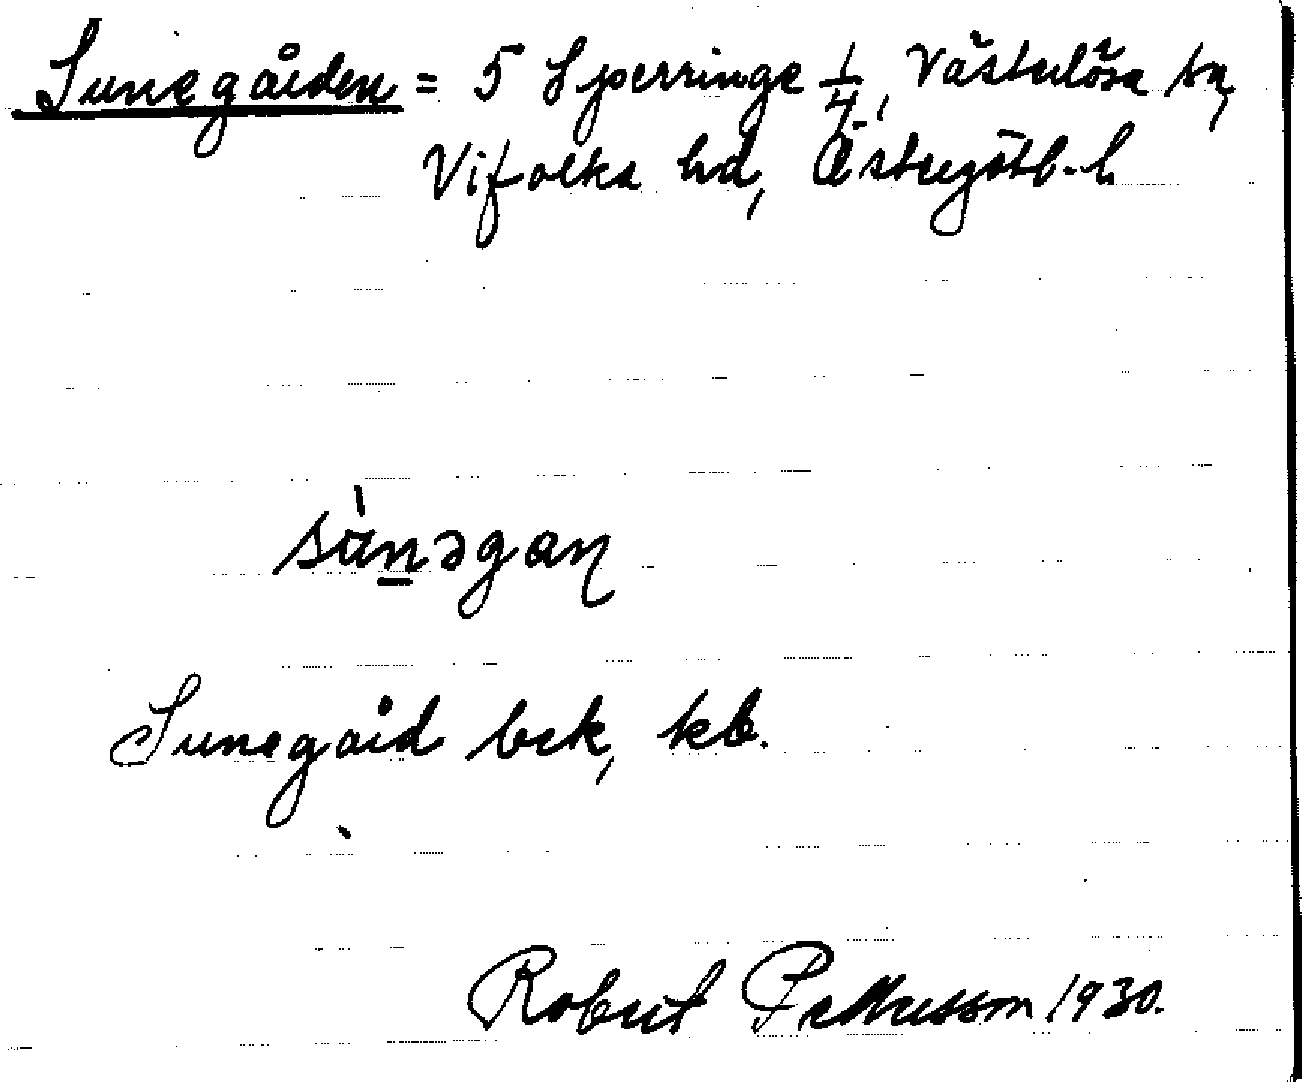 Sunegården = 5 Sperringe 1/4, Västerlösa sn,
Vifolka hd, Östergötl. l.
sùnəgaɳ
Sunegård bek, kb.
Robert Pettersson 1930.